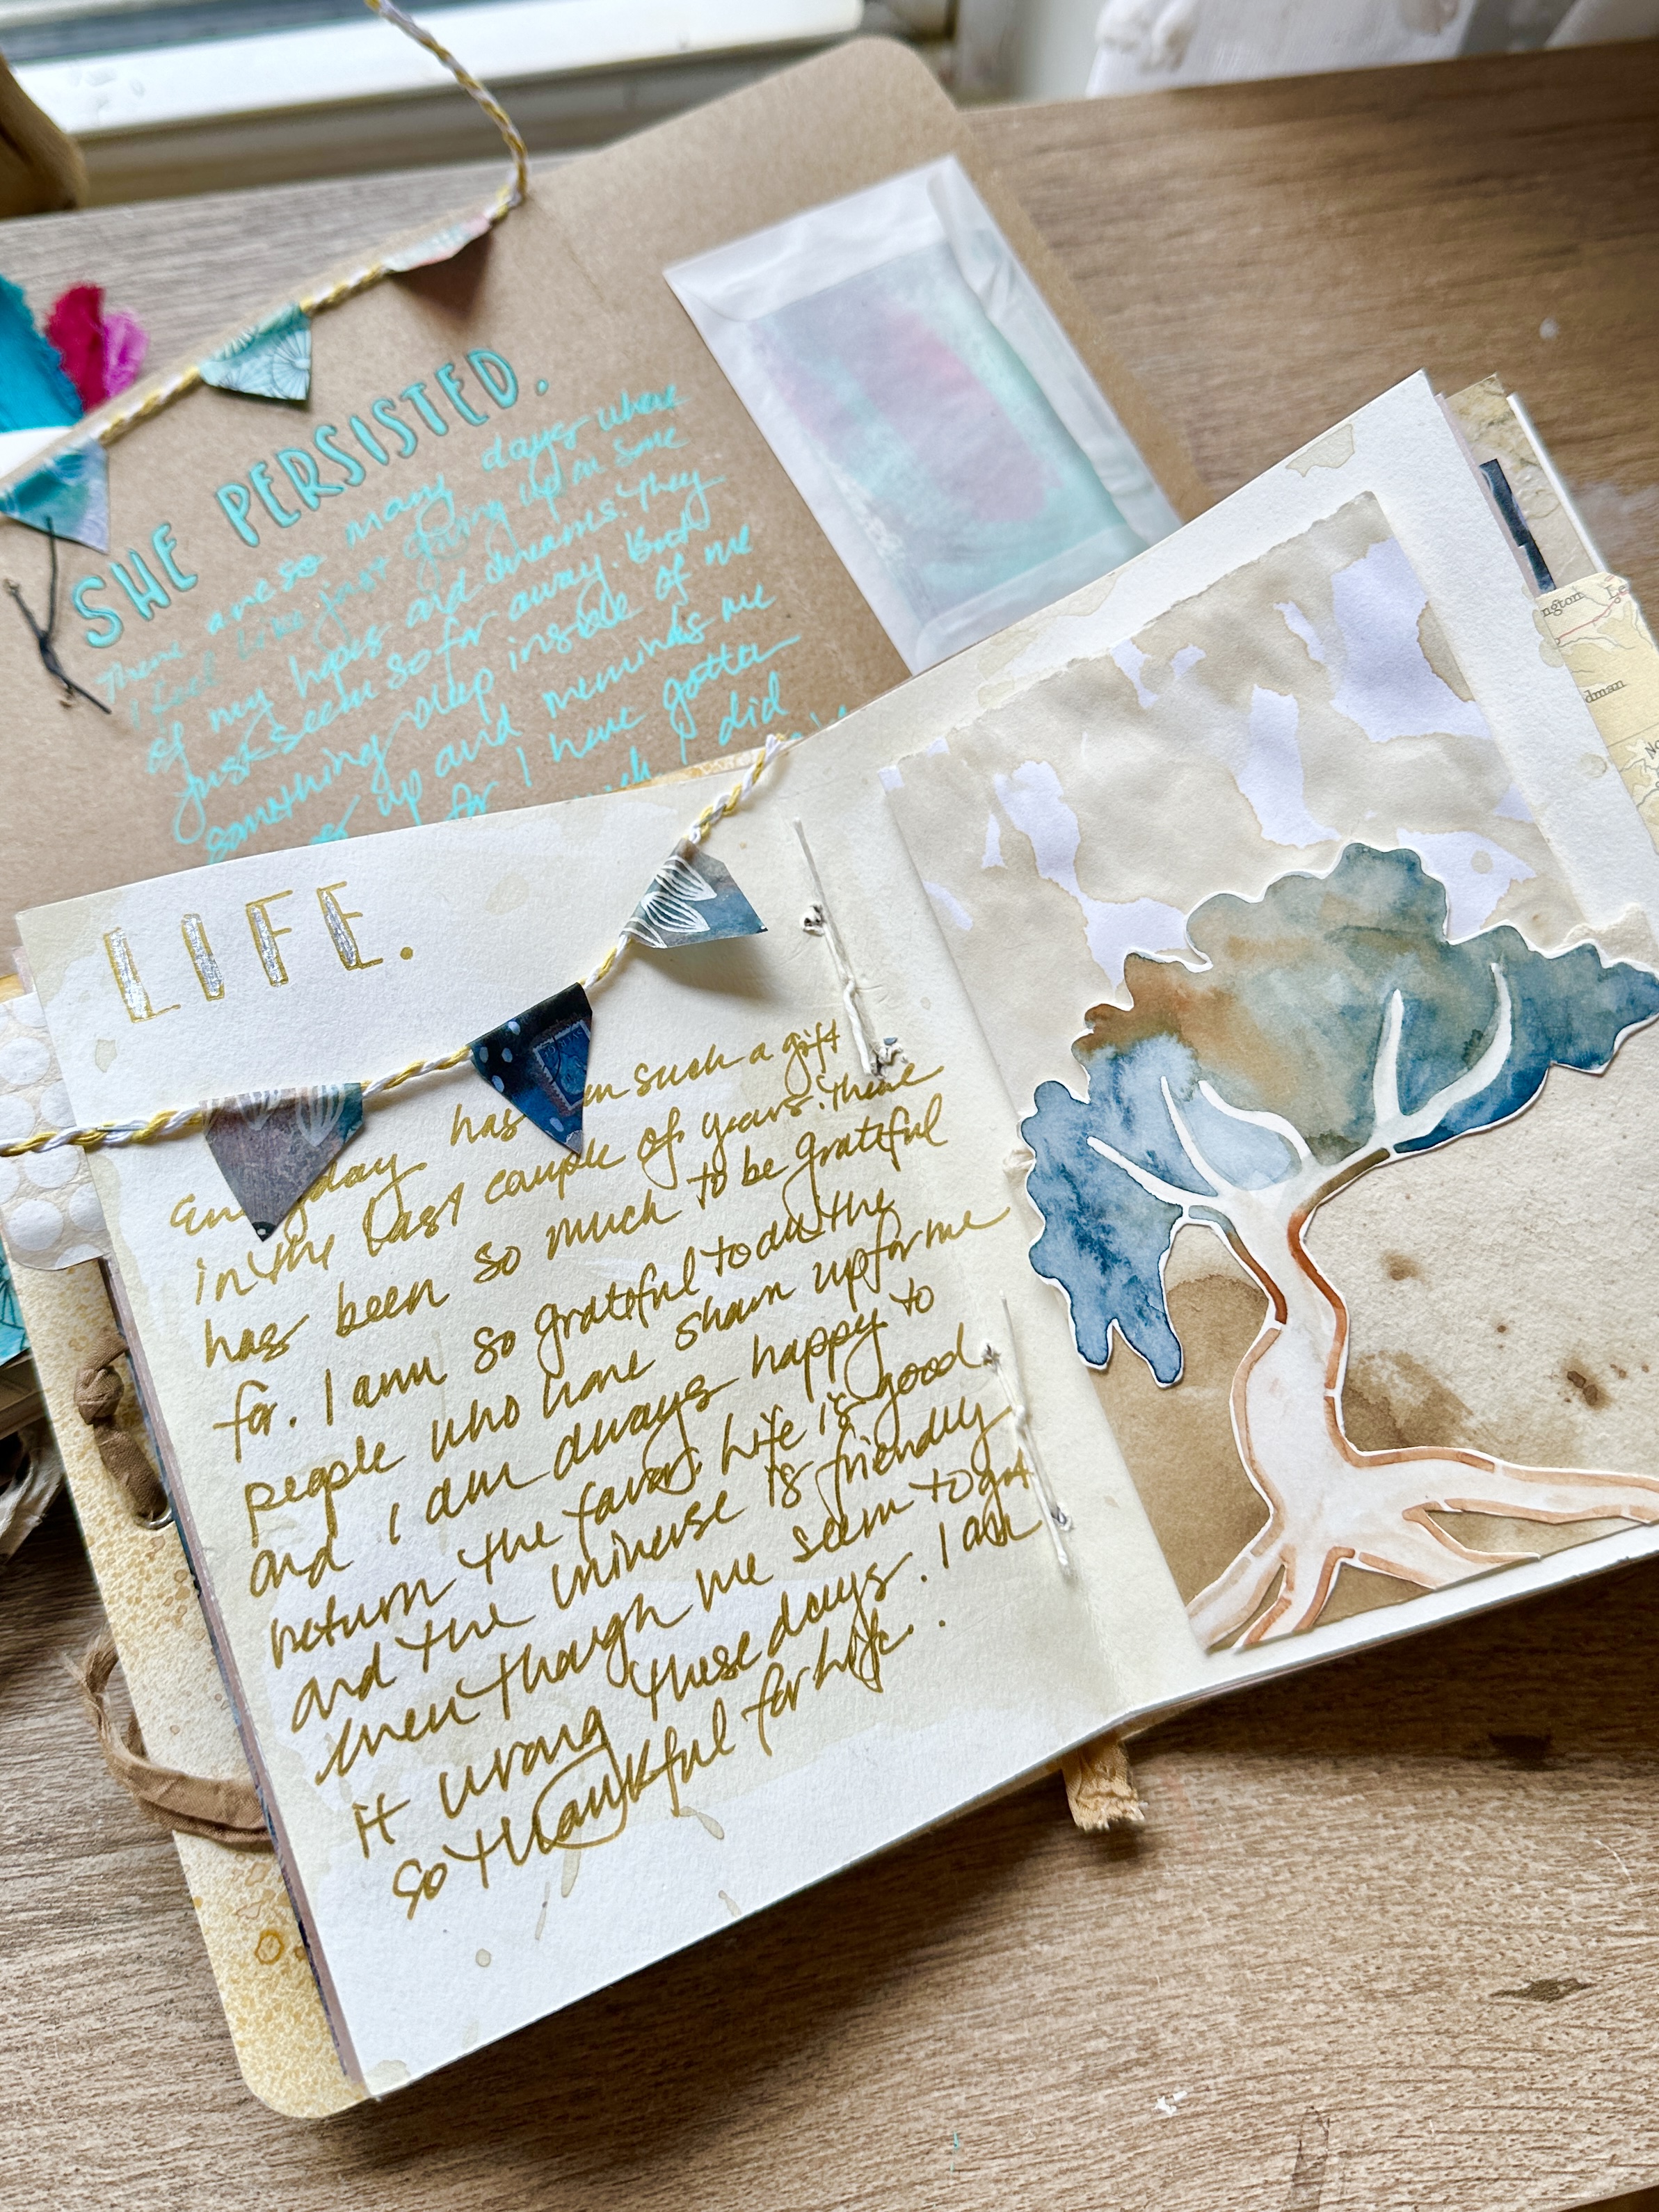 SHE PERSISTED.
There are so many days where
I feel like just giving up on some
of my hopes and dreams. They
just seem so far away. But
something deep inside of me
up and reminds me
for I have gotten
I did
LIFE.
Everyday has been such a gift
in the last couple of years. There
has been so much to be grateful
for. I am so grateful to all the
people who have shown up for me
and I am always happy to
return the favor. Life is good
and the universe is friendly
even though we seem to get
it wrong these days. I am
so thankful for life.
ngton Le
dman
No